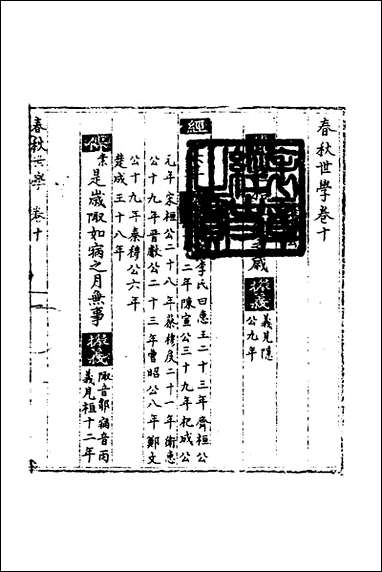 春秋世學卷十
歲
義見隱
公九年
經
李氏曰惠王二十三年齊桓公
二年陳宣公三十九年杞成公
元年宋桓公二十八年蔡穆侯二十一年衛惠
公十九年晉獻公二十三年曹昭公八年鄭文
公十九年秦穆公六年
楚成王十八年
是歲陬如病之月無事
陬音鄹病音丙
義見桓十二年
春秋世學 卷十